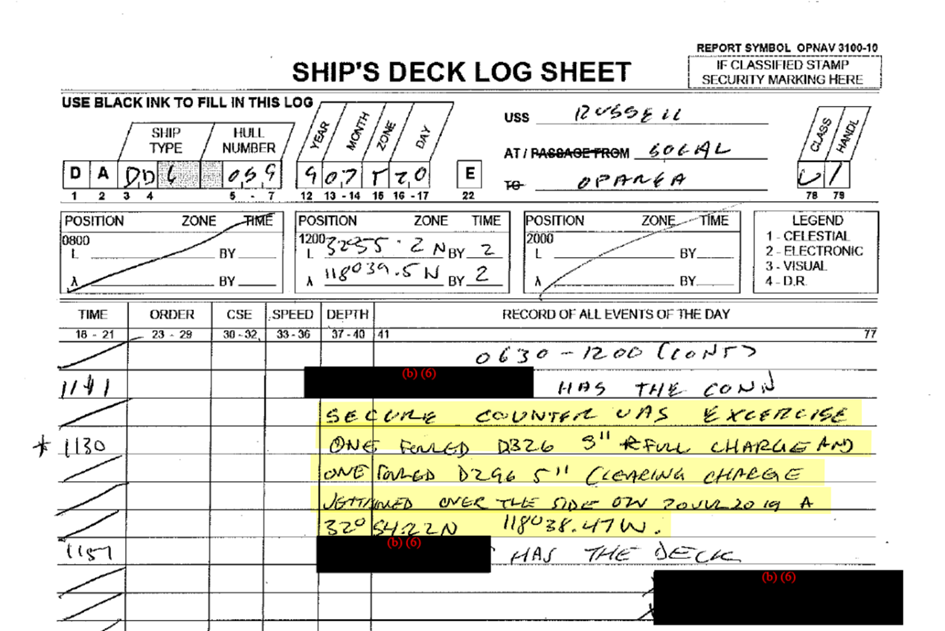 REPORT SYMBOL OPNAV 3100-10
IF CLASSIFIED STAMP
SECURITY MARKING HERE
SHIP'S DECK LOG SHEET
USE BLACK INK TO FILL IN THIS LOG
SHIP TYPE HULL NUMBER YEAR MONTH ZONE DAY
USS RUSSELL
CLASS HANDL
AT / PASSAGE FROM SOCAL
D A DD G 059 9 07 T 20 E U
TO OPAREA
1 2 3 4 5 - 7 12 13 - 14 15 16 - 17 22 78 79
POSITION ZONE TIME POSITION ZONE TIME POSITION ZONE TIME LEGEND
0800 1200 2000 1 - CELESTIAL
L BY L N BY 2 L BY 2 - ELECTRONIC
3 - VISUAL
λ BY λ 118039.5 N BY 2 λ BY 4 - D.R.
TIME ORDER CSE SPEED DEPTH RECORD OF ALL EVENTS OF THE DAY
18 - 21 23 - 29 30 - 32 33 - 36 37 - 40 41 77
0630 - 1200 (CONT)
(b) (6)
HAS THE CONN
SECURE COUNTER UAS EXCERCISE
* 1130 ONE FOULED D326 5" FULL CHARGE AND
ONE FOULED D296 5" CLEARING CHARGE
OVER THE SIDE ON 20JUL2019 A
32° 54.22N 118038.47W.
(b) (6)
1157 HAS THE DECK
(b) (6)